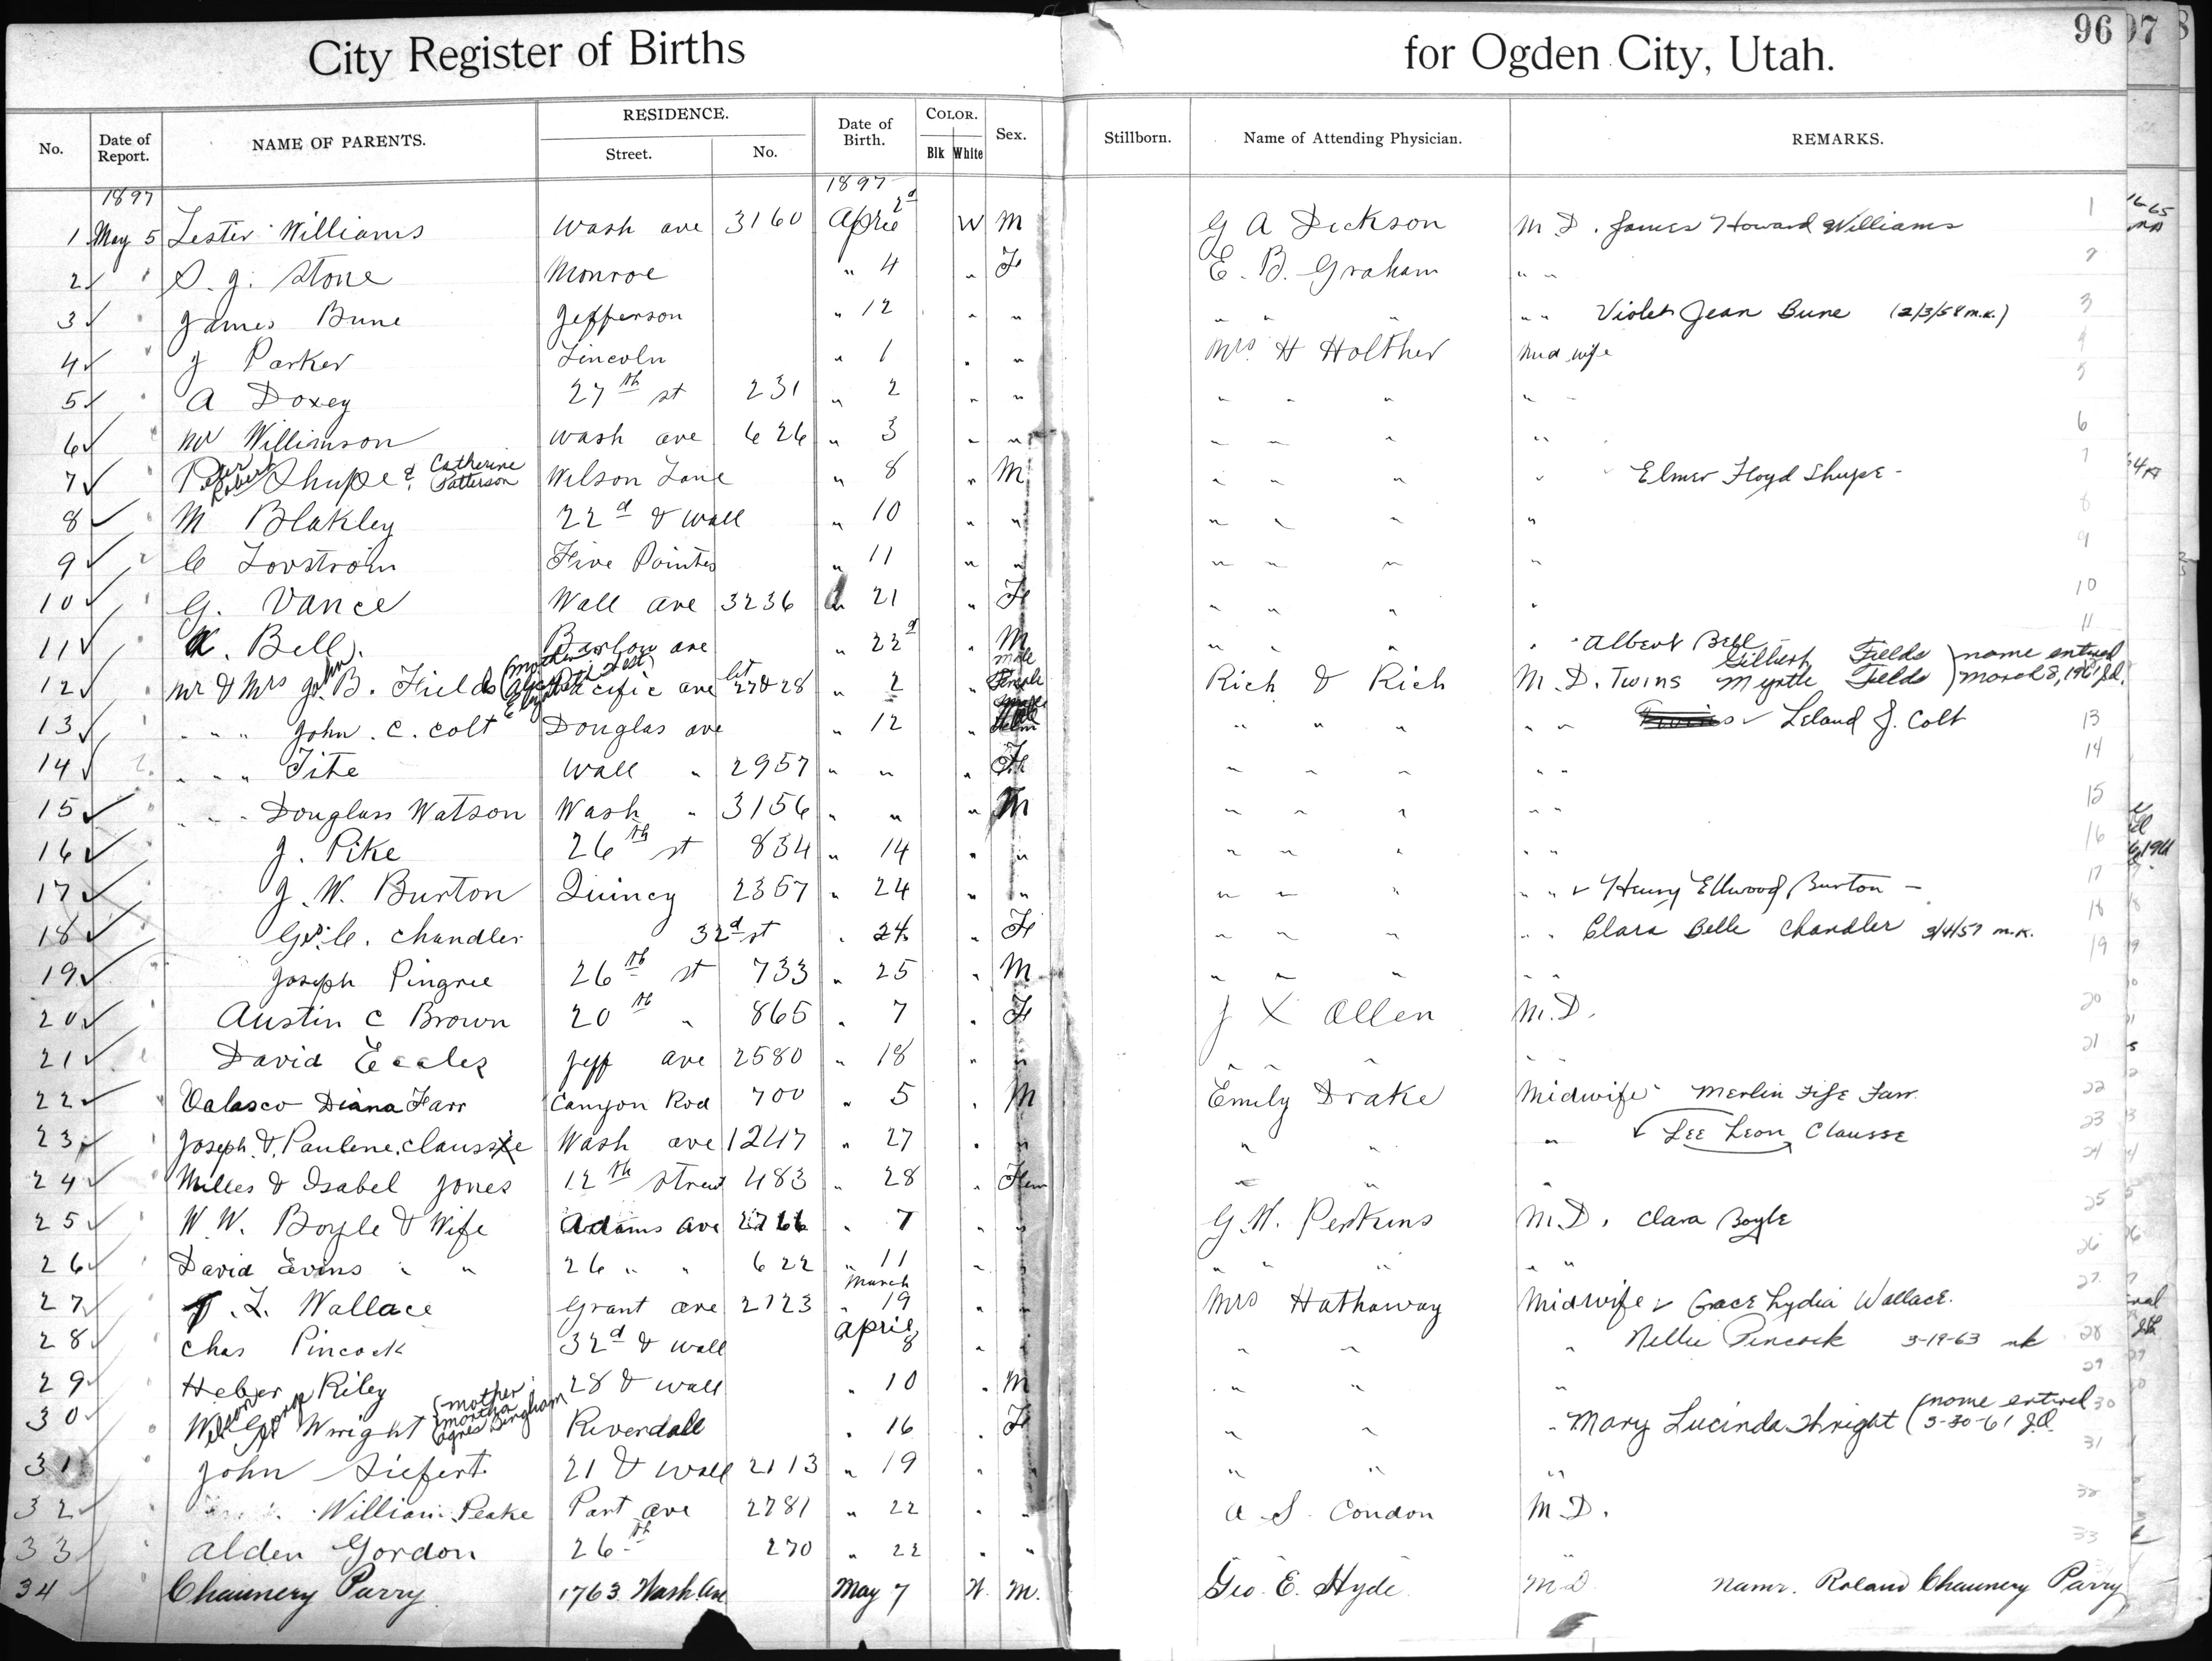 City Register of Births for Ogden City, Utah. 96 97
No. Date of Report. NAME OF PARENTS. RESIDENCE. Street. No. Date of Birth. COLOR. Blk White Sex. Stillborn. Name of Attending Physician. REMARKS.
1897 1897
1 May 5 Lester Williams Wash ave 3160 April 2d W M G A Dickson M.D. James Howard Williams 1
2 S. J. Stone Monroe " 4 " Fe E. B. Graham " " 2
3 James Bune Jefferson " 12 " " " " " " " Violet Jean Bune (2/3/58 m.k.) 3
4 J Parker Lincoln " 1 " " Mrs H Holther Mid wife 4
5 A Doxey 27th st 231 " 2 " " " " " " " 5
6 W Willimson Wash ave 626 " 3 " " " " " " 6
7 Peter Robert Shupe & Catherine Patterson Wilson Lane " 8 " M " " " " Elmer Floyd Shupe - 7
8 M Blakley 22d & Wall " 10 " " " " " " 8
9 C Lovstrom Five Points " 11 " " " " " " 9
10 G. Vance Wall ave 3236 " 21 " Fe " " " " 10
11 Bell. Barlow ave " 22d " M " " " " Albert Bell 11
12 Mr & Mrs B. Fields (Mother Pacific ave 27&28 " 2 " Male Female Rich & Rich M.D. Twins Gilbert Fields Myrtle Fields } name entered March 8, 1961 J.D.
13 " " " John. C. Colt Douglas ave " 12 " " " " " " Leland J. Colt 13
14 " " " Tite Wall " 2957 " " " Fe " " " " " 14
15 " " " Douglass Watson Wash " 3156 " " " M " " " " " 15
16 J. Pike 26th st 834 " 14 " " " " " " " 16
17 J. W. Burton Quincy 2357 " 24 " " " " " " " Henry Ellwood Burton - 17
18 Geo. C. Chandler 32d st " 24 " Fe " " " " " Clara Belle Chandler 3/4/57 m.k. 18
19 Joseph Pingree 26th st 733 " 25 " M " " " " " 19
20 Austin C Brown 20th " 865 " 7 " Fe J X Allen M.D. 20
21 David Eccles Jeff ave 2580 " 18 " " " " " " " 21
22 Valasco Diana Farr Canyon Rod 700 " 5 " M Emily Drake Midwife Merlin Fife Farr. 22
23 Joseph & Paulene. Clausse Wash ave 1247 " 27 " " " " " Lee Leon Clausse 23
24 Milles & Isabel Jones 12th Street 483 " 28 " Fem " " " 24
25 W. W. Boyle & Wife Adams ave 2766 " 7 " " G. W. Perkins M.D. Clara Boyle 25
26 David Evins " " 26 " " 622 " 11 " " " " " " " 26
27 L. Wallace Grant ave 2123 March " 19 " " Mrs Hathaway Midwife Grace Lydia Wallace. 27
28 Chas Pincock 32d & Wall April 8 " " " " " Nellie Pincock 3-19-63 mk 28
29 Heber Riley 28 & Wall " 10 " M " " " 29
30 George Wright (mother Martha Agnes Bingham Riverdale " 16 " Fe " " " Mary Lucinda Wright (name entered 3-30-61 J.D. 30
31 John Siefert 21 & Wall 2113 " 19 " " " " " 31
32 William Peake Part ave 2781 " 22 " " A S. Condon M.D. 32
33 Alden Gordon 26th 270 " 22 " " " 33
34 Chauncey Parry 1763 Wash Ave May 7 W. M. Geo. E. Hyde M.D. Name. Roland Chauncey Parry